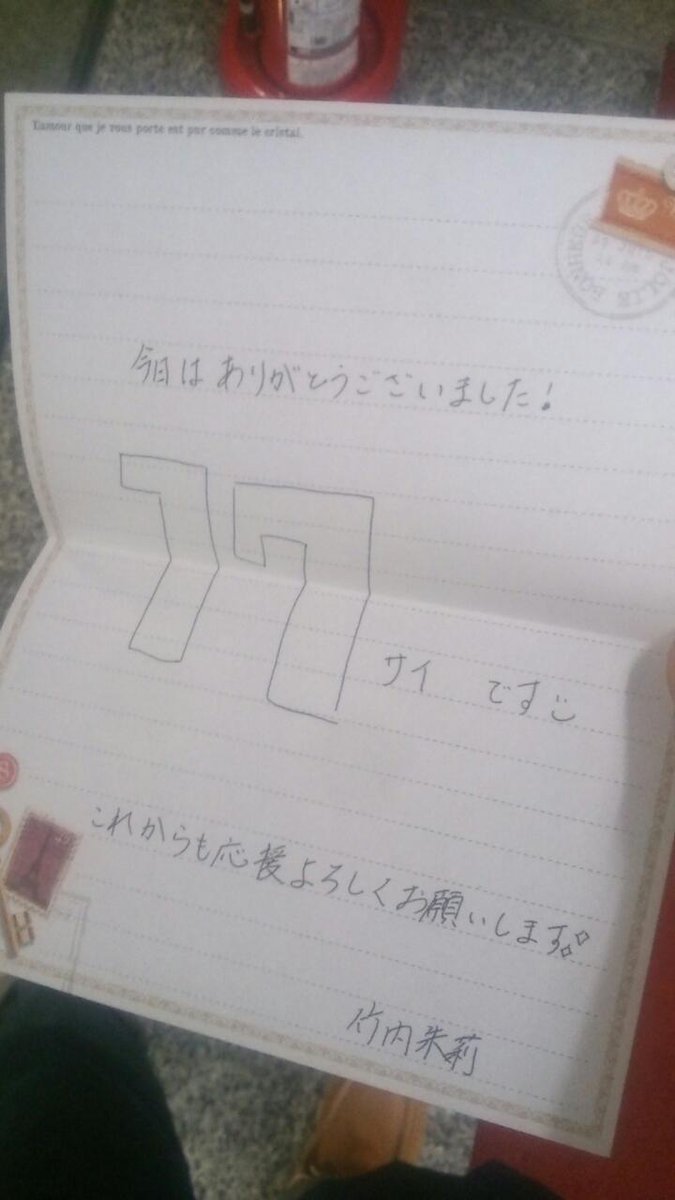 L'amour que je vous porte est pur comme le cristal.
今日はありがとうございました!
17サイ ですこ
これからも応援よろしくお願いします。
竹内朱莉